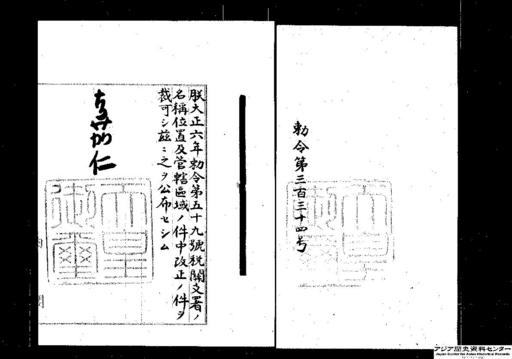 勅令第三百三十四号
朕大正六年勅令第五十九號税關支署ノ
名稱位置及管轄區域ノ件中改正ノ件ヲ
裁可シ玆ニ之ヲ公布セシム
嘉仁
天皇
御璽
内閣
アジア歴史資料センター
Japan Center for Asian Historical Records